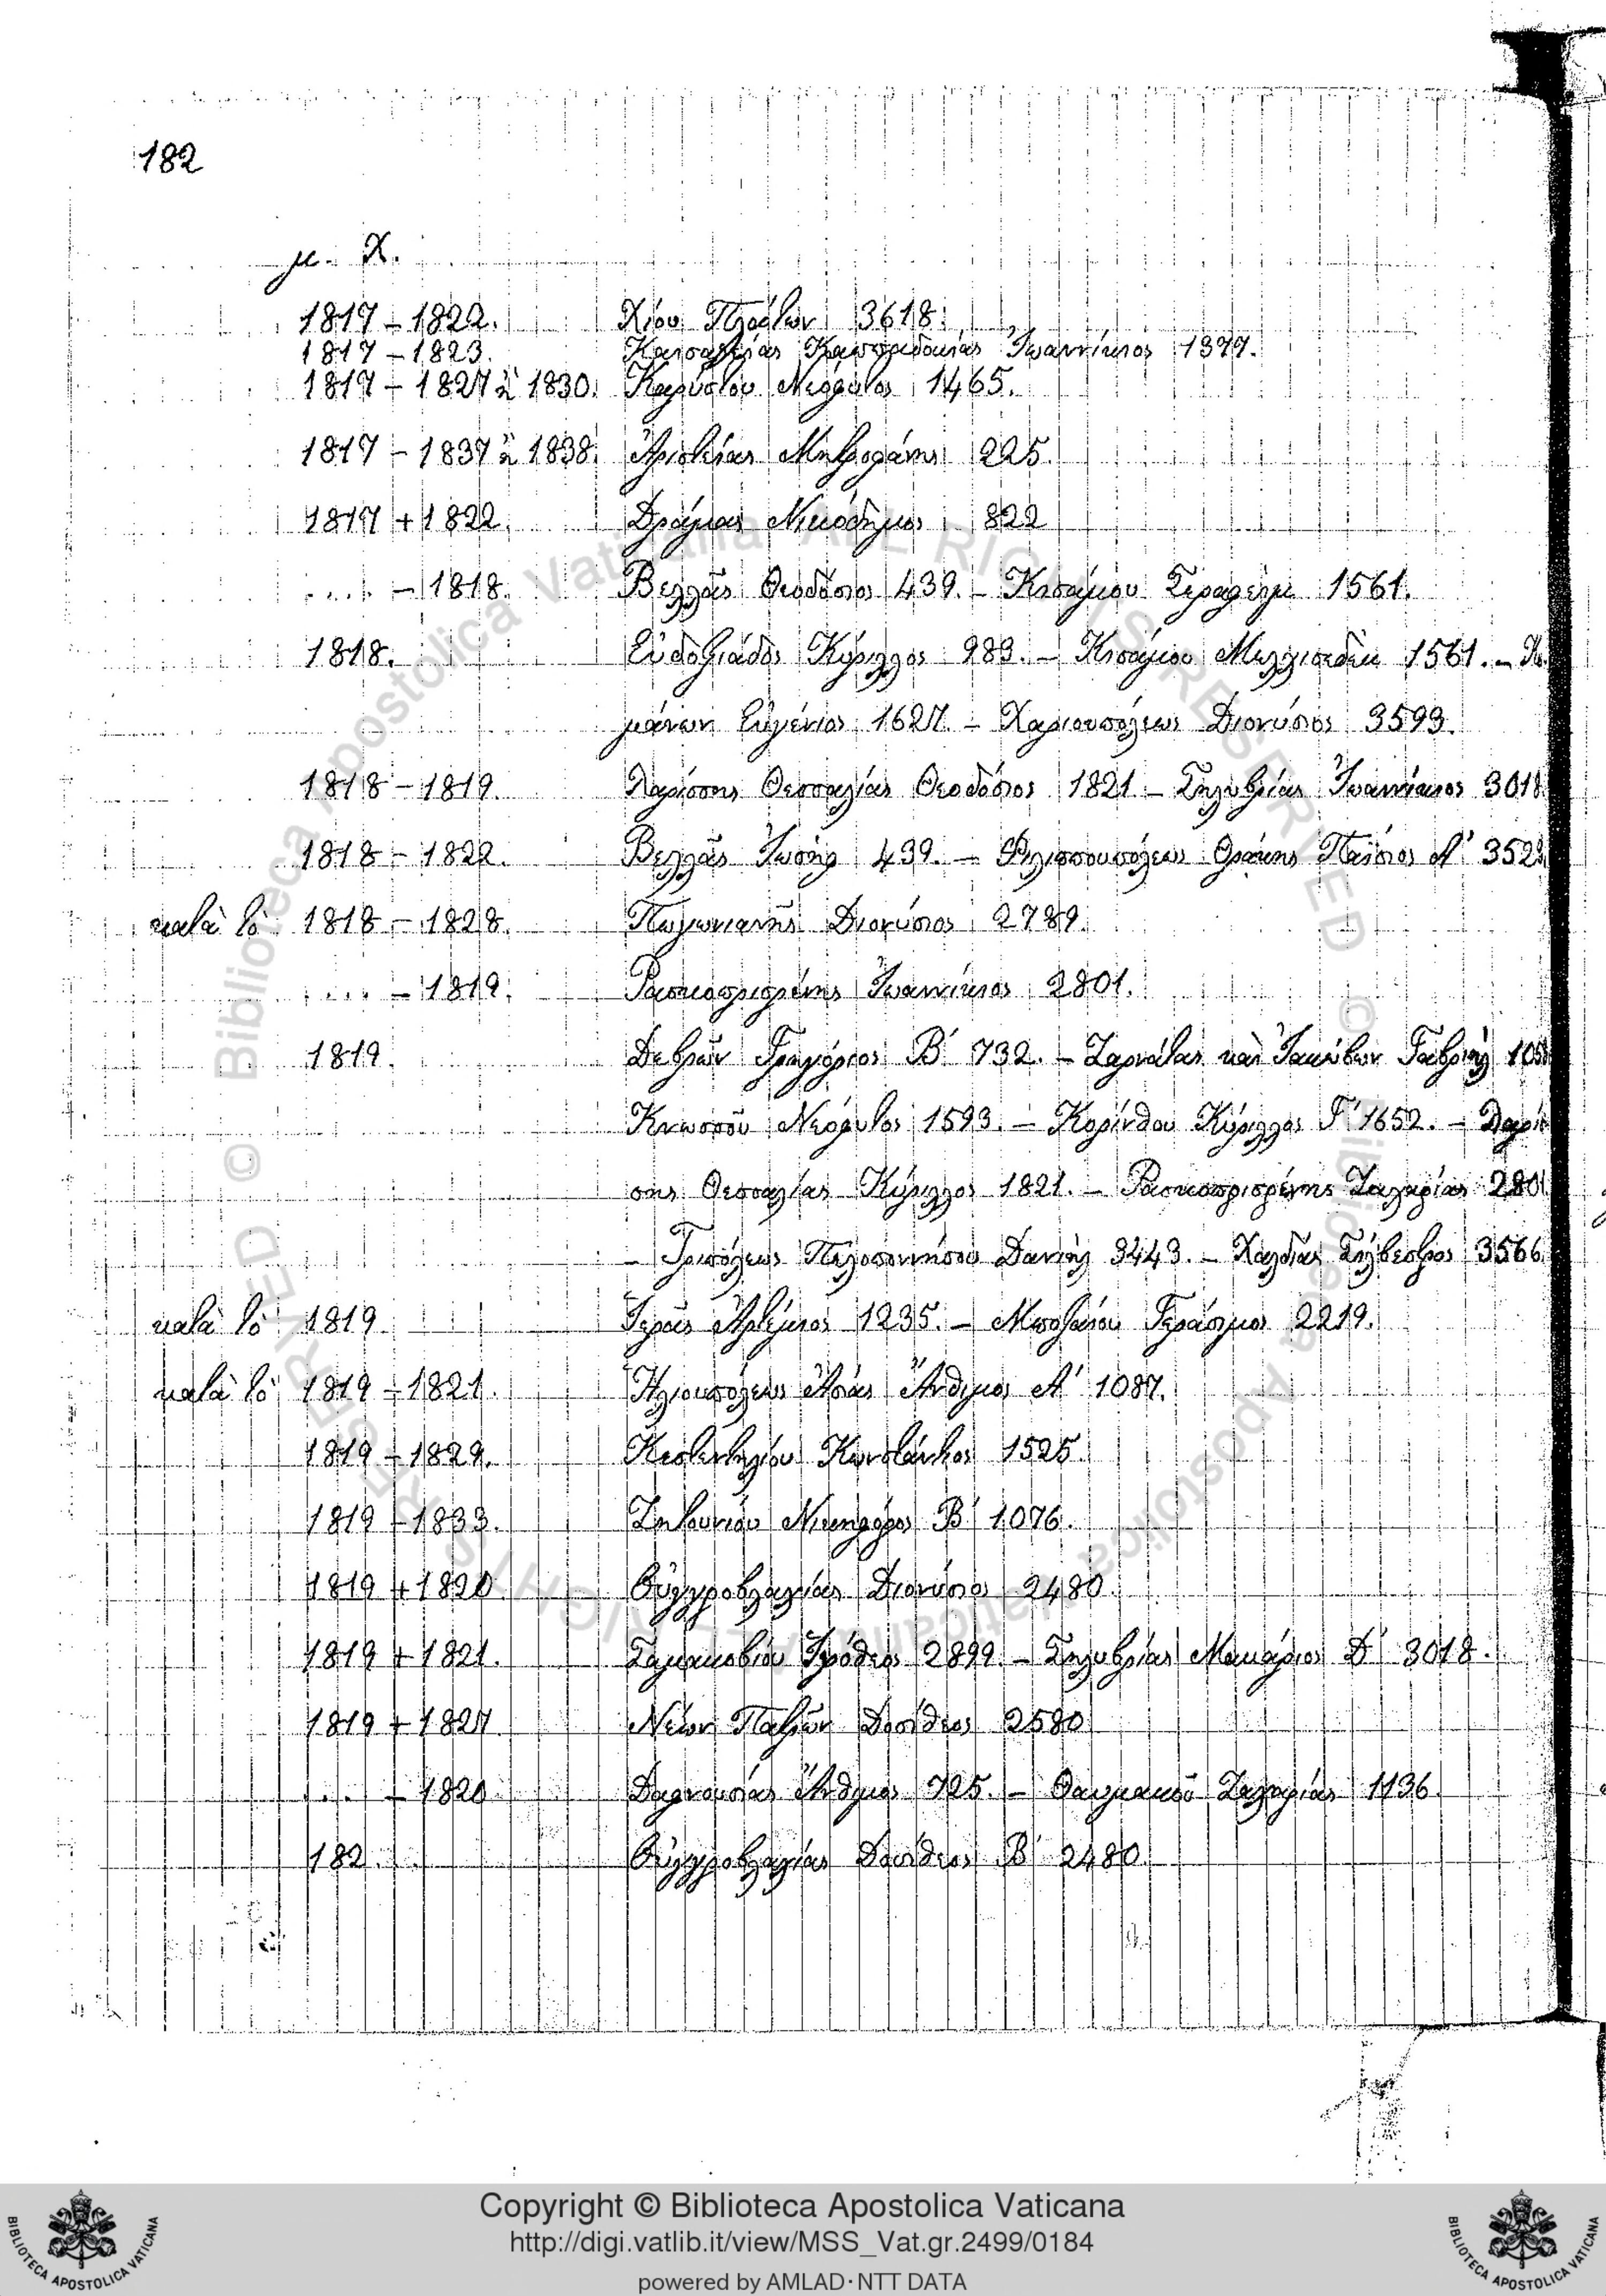 182
μ. Χ.
1817 – 1822. Χίου Πλάτων 3618.
1817 – 1823. Καισαρείας Καππαδοκίας Ἰωαννίκιος 1377.
1817 – 1827 ἢ 1830. Καρύστου Νεόφυτος 1465.
1817 – 1837 ἢ 1838. Ἀριστείας Μητροφάνης 225.
1817 + 1822. Δράμας Νικόδημος 822
.... – 1818. Βελλᾶς Θεοδόσιος 439. – Κισάμου Σεραφεὶμ 1561.
1818. Εὐδοξιάδος Κύριλλος 983. – Κισάμου Μελχισεδὲκ 1561. –
μάνων Εὐγένιος 1627. – Χαριουπόλεως Διονύσιος 3593.
1818 – 1819. Λαρίσσης Θεσσαλίας Θεοδόσιος 1821 – Σηλυβρίας Ἰωαννίκιος 3018
1818 – 1822. Βελλᾶς Ἰωσὴφ 439. – Φιλιππουπόλεως Θράκης Παΐσιος Α΄ 352
κατὰ τὸ 1818 – 1828. Πωγωνιανῆς Διονύσιος 2789.
.... – 1819. Ρασκοπρισρένης Ἰωαννίκιος 2801.
1819. Δεβρῶν Γρηγόριος Β΄ 732. – Ζαρνάτας καὶ Γαβριὴλ 105
Κνωσσοῦ Νεόφυτος 1593. – Κορίνθου Κύριλλος Γ΄ 1652. – Λαρίσ
σης Θεσσαλίας Κύριλλος 1821. – Ρασκοπρισρένης Ζαχαρίας 280
– Τριπόλεως Πελοποννήσου Δανιὴλ 3443. – Χαλδίας Σίλβεστρος 3566
κατὰ τὸ 1819. Ἱερᾶς Ἀρτέμιος 1235. – Γεράσιμος 2219.
κατὰ τὸ 1819 – 1821. Ἡλιουπόλεως Ἀσίας Ἄνθιμος Α΄ 1087.
1819 – 1829. Κεστεντηλίου Κωνστάντιος 1525.
1819 – 1833. Ζητουνίου Νικηφόρος Β΄ 1076.
1819 + 1820 Οὐγγροβλαχίας Διονύσιος 2480.
1819 + 1821. Σαμακοβίου Ἱερόθεος 2899. – Σηλυβρίας Μακάριος Δ΄ 3018.
1819 + 1827 Νέων Πατρῶν Δοσίθεος 2580
.... – 1820 Δαφνουσίας Ἄνθιμος 725. – Θαυμακοῦ Ζαχαρίας 1136.
182. Οὐγγροβλαχίας Δοσίθεος Β΄ 2480.
© Biblioteca Apostolica Vaticana - ALL RIGHTS RESERVED
Copyright © Biblioteca Apostolica Vaticana
http://digi.vatlib.it/view/MSS_Vat.gr.2499/0184
powered by AMLAD·NTT DATA
BIBLIOTECA APOSTOLICA VATICANA
BIBLIOTECA APOSTOLICA VATICANA